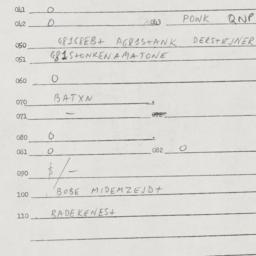 041 0
042 0 043 PONK QNP
050 G81G8EB+ AG81S+ANK DERS+EJNER
051 G81S+ONRENAMATONE
060 0
070 BATXN
071 -
080 0
081 0 082 0
090 $/-
100 BOBE MIDEMZEJD+
110 RADEKENES+